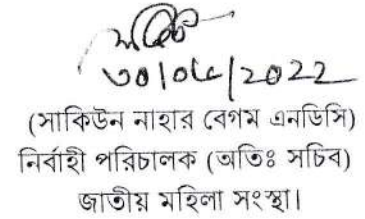 ৩০/০৫/২০২২
(সাকিউন নাহার বেগম এনডিসি)
নির্বাহী পরিচালক (অতিঃ সচিব)
জাতীয় মহিলা সংস্থা।